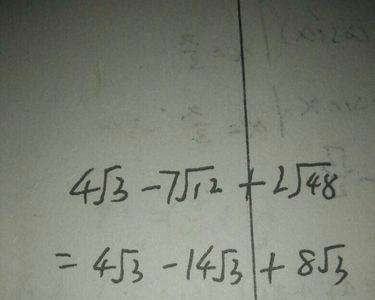 4√3 - 7√12 + 2√48
= 4√3 - 14√3 + 8√3